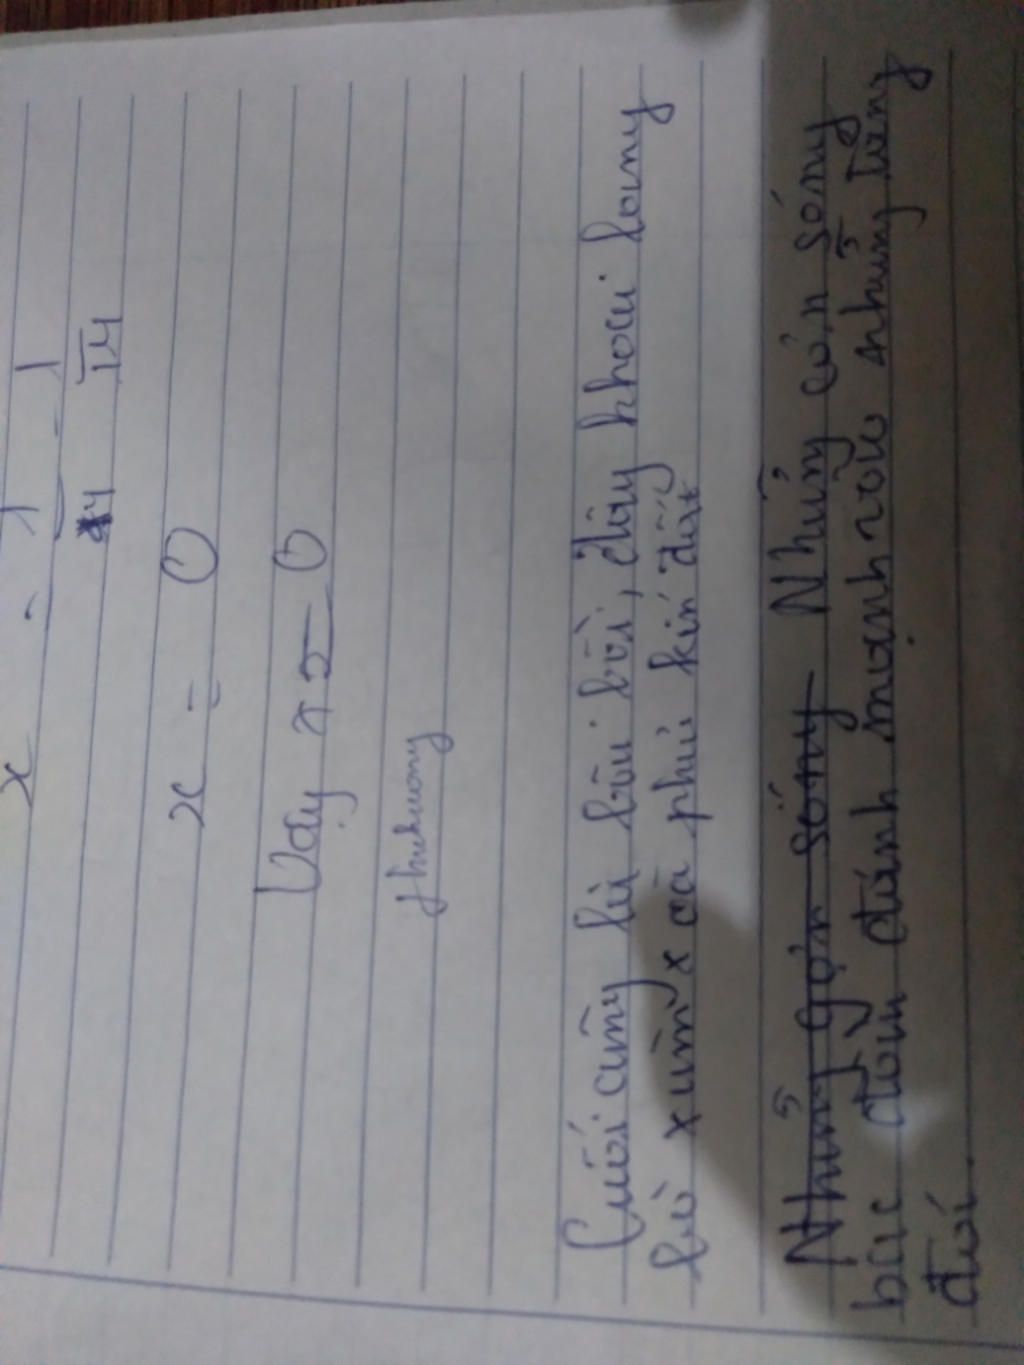 x = 1/14 - 1/14
x = 0
Vậy x = 0
thuhuong
Cuối cùng là bãi bồi, dây khoai lang
là xùm xòa phủ kín đất
Những gợn sóng Những cơn sóng
bạc đầu đánh mạnh vào những tảng
đá.